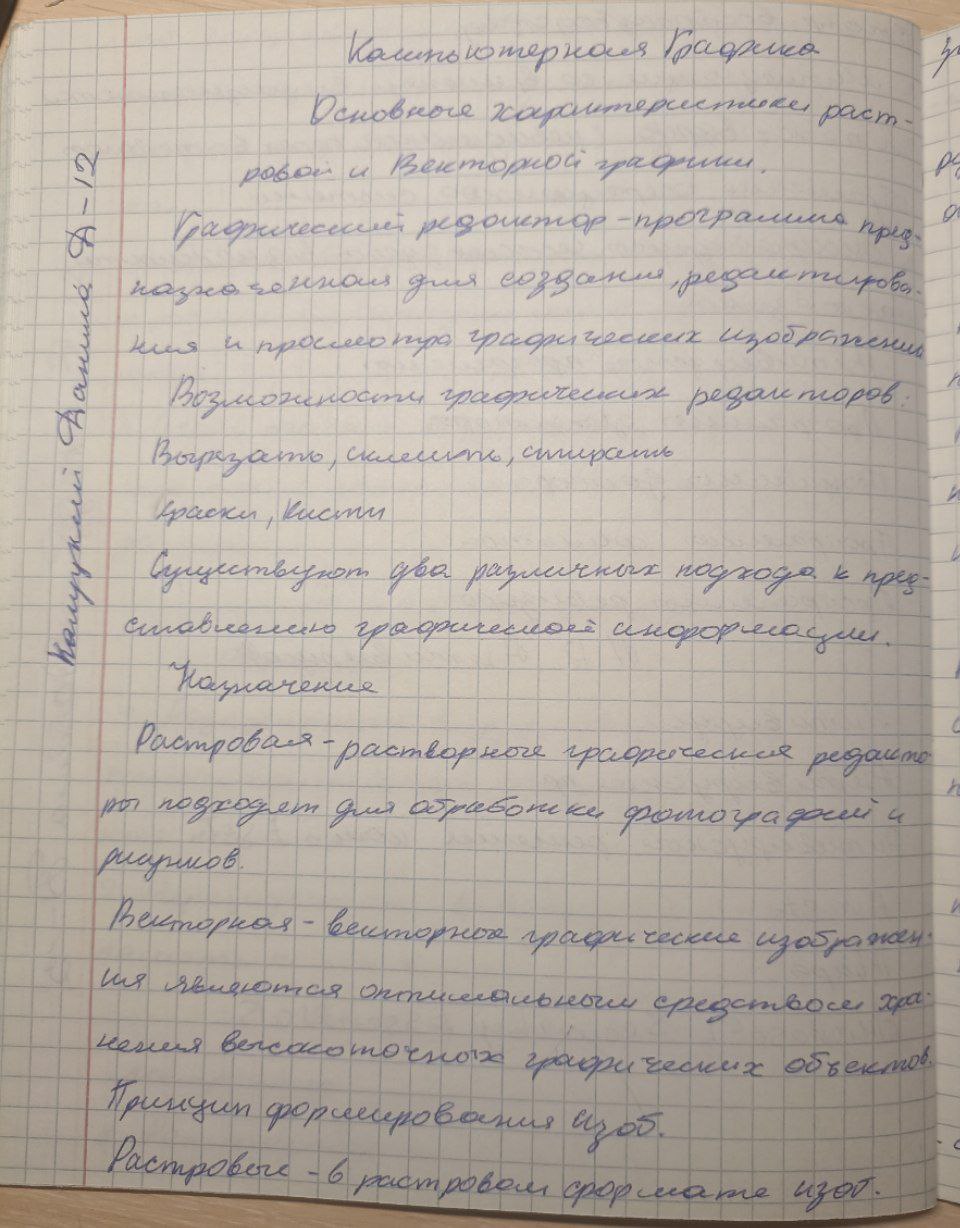 Компьютерная Графика
Основные характеристики раст-
ровой и Векторной графики.
Графический редактор - программа пред-
назначенная для создания, редактирова-
ния и просмотра графических изображений
Возможности графических редакторов:
Вырезать, склеить, стирать
краски, кисти
Существуют два различных подхода к пред-
ставлению графической информации.
Назначение
Растровая - растворные графические редакто
ры подходят для обработки фотографий и
рисунков.
Векторная - векторные графические изображен-
ия являются оптимальным средством хра-
нения высокоточных графических объектов.
Принцип формирования изоб.
Растровые - в растровом формате изоб.
Данила Д-12